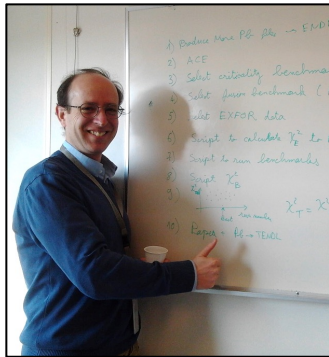 1) Produce More Pb files → ENDF
2) ACE
3) Select criticality benchmark
4) Select fusion benchmark (
5) Select EXFOR data
6) Script to calculate χ²E to
7) Script to run benchmarks
8) Script χ²E
9)
run number
χ²T = χ²
10) → Pb → TENDL